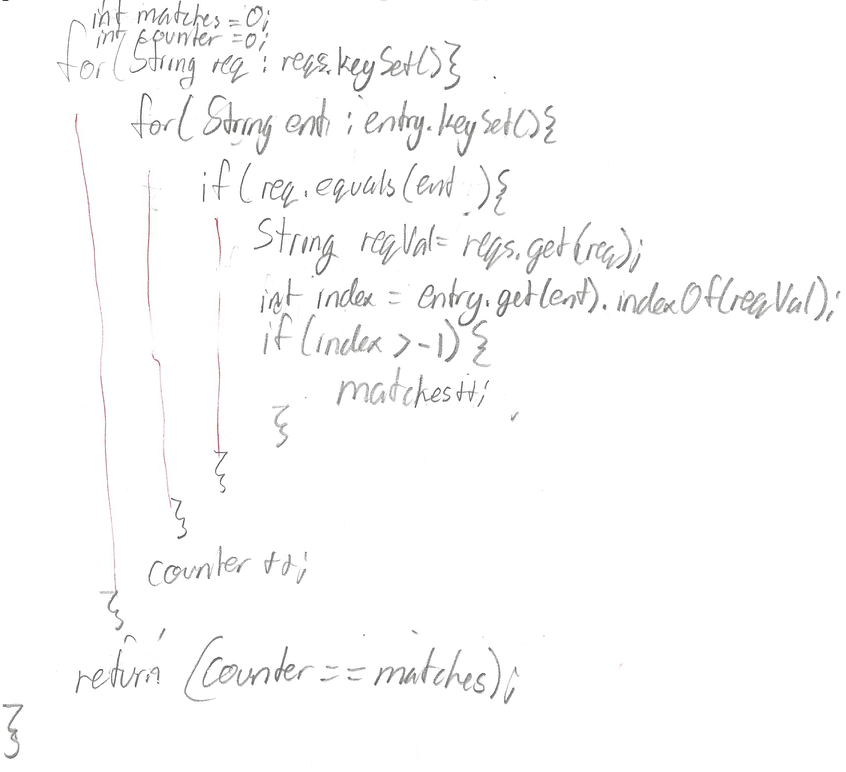 int matches = 0;
int counter = 0;
for(String req : reqs.keySet()}
for(String ent : entry.keySet(){
if(req.equals(ent ){
String reqVal = reqs.get(req);
int index = entry.get(ent).indexOf(reqVal);
if(index > -1) {
matches++;
}
}
}
counter ++;
}
return (counter == matches);
}